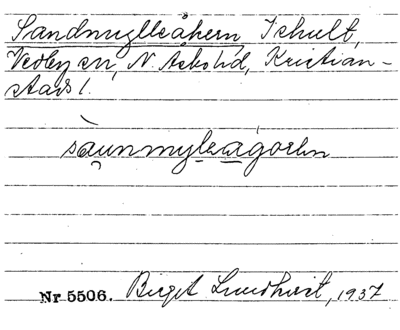 Sandmylleåkern, I skult,
Vedby sn, N. Åsbo hd, Kristian-
stads l.
sàunmyleagorln
Nr 5506. Birgit Lundkvist, 1937